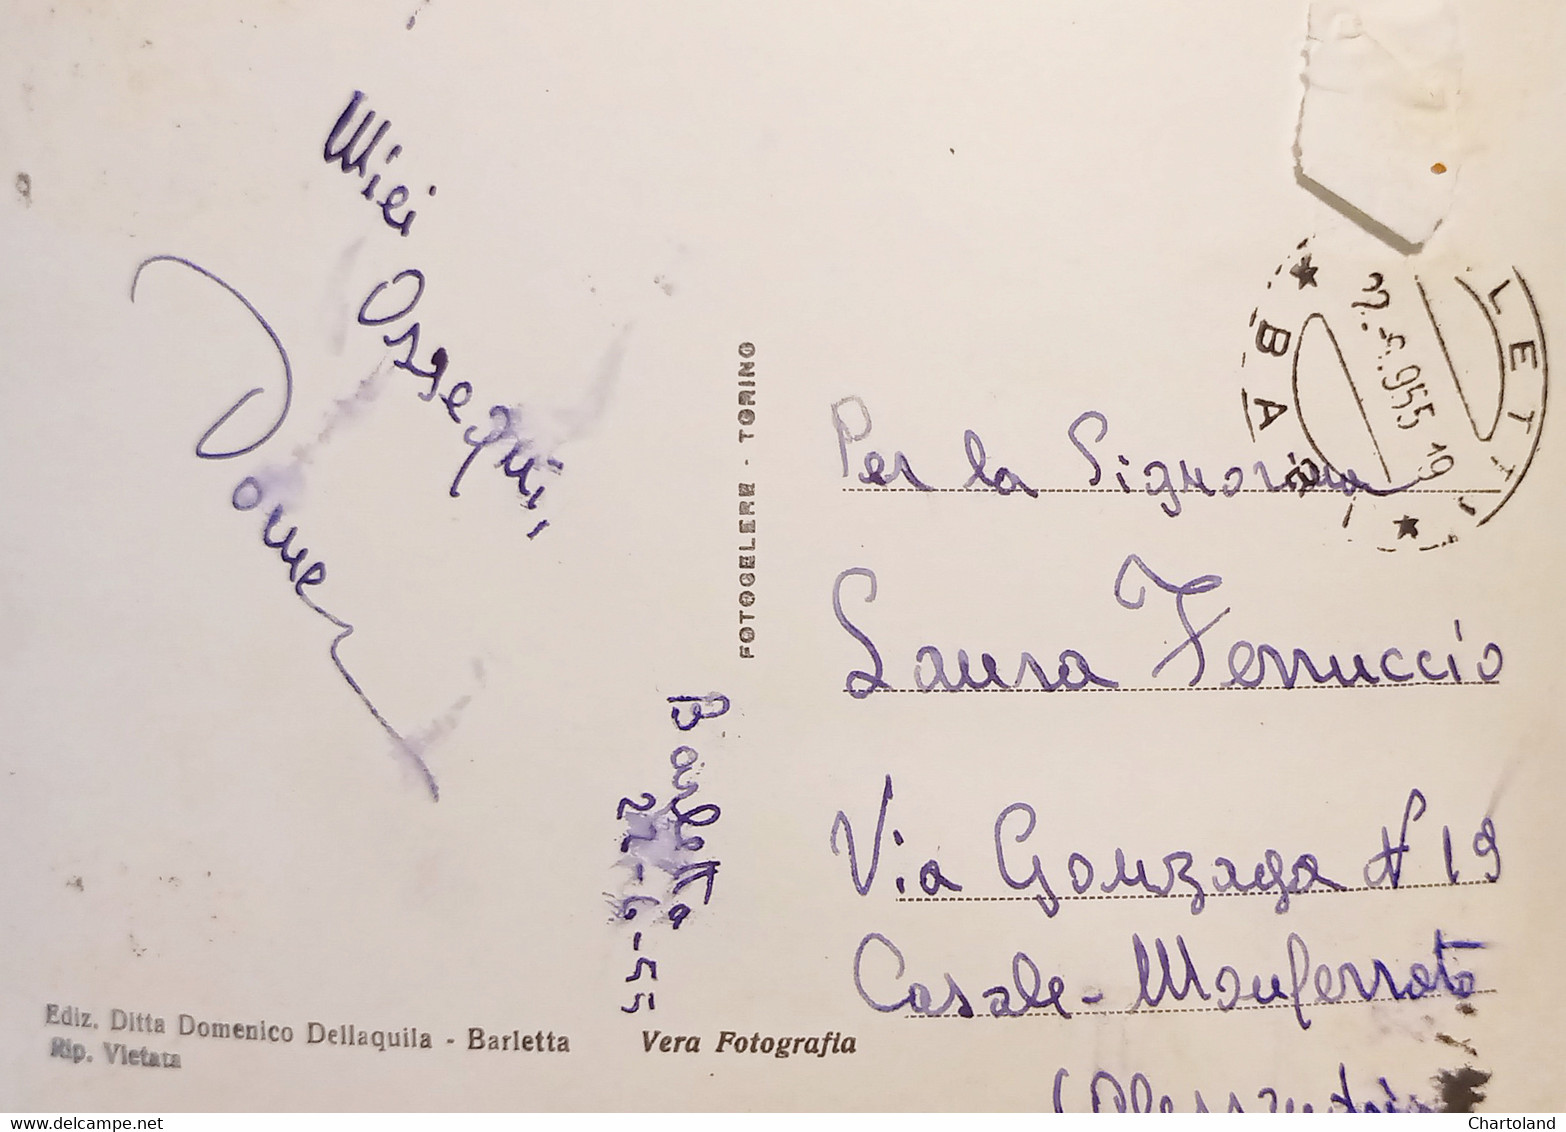 Miei
Ossequi,
Barletta
22-6-55
FOTOCELERE - TORINO
Per la Signorina
Laura Ferruccio
Via Gonzaga N 19
Casale-Monferrato
(Alessandria
BA LETT
955 19
Ediz. Ditta Domenico Dellaquila - Barletta
Rip. Vietata
Vera Fotografia
delcampe.net
Chartoland